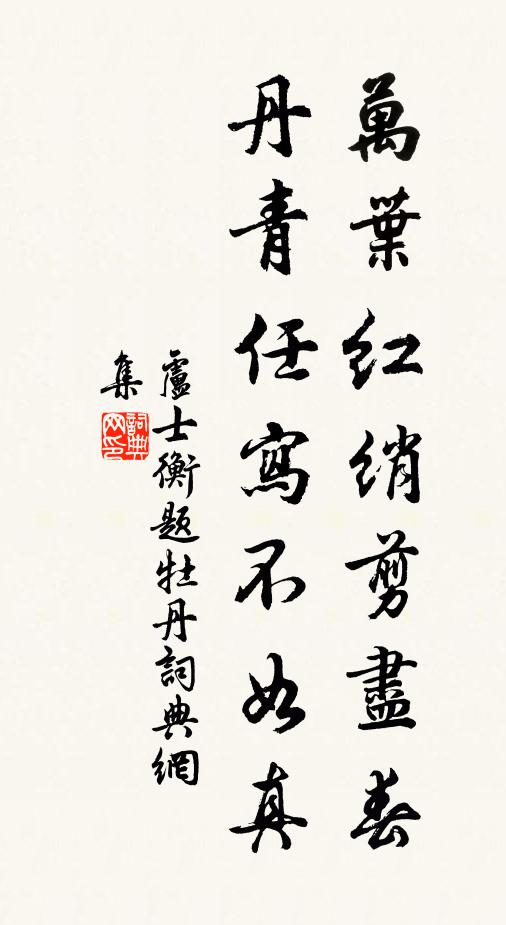 萬葉紅綃剪盡春
丹青任寫不如真
盧士衡題牡丹詞典網
集
詞典
网印